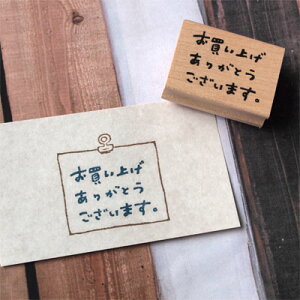 お買い上げ
ありがとう
ございます。
お買い上げ
ありがとう
ございます。